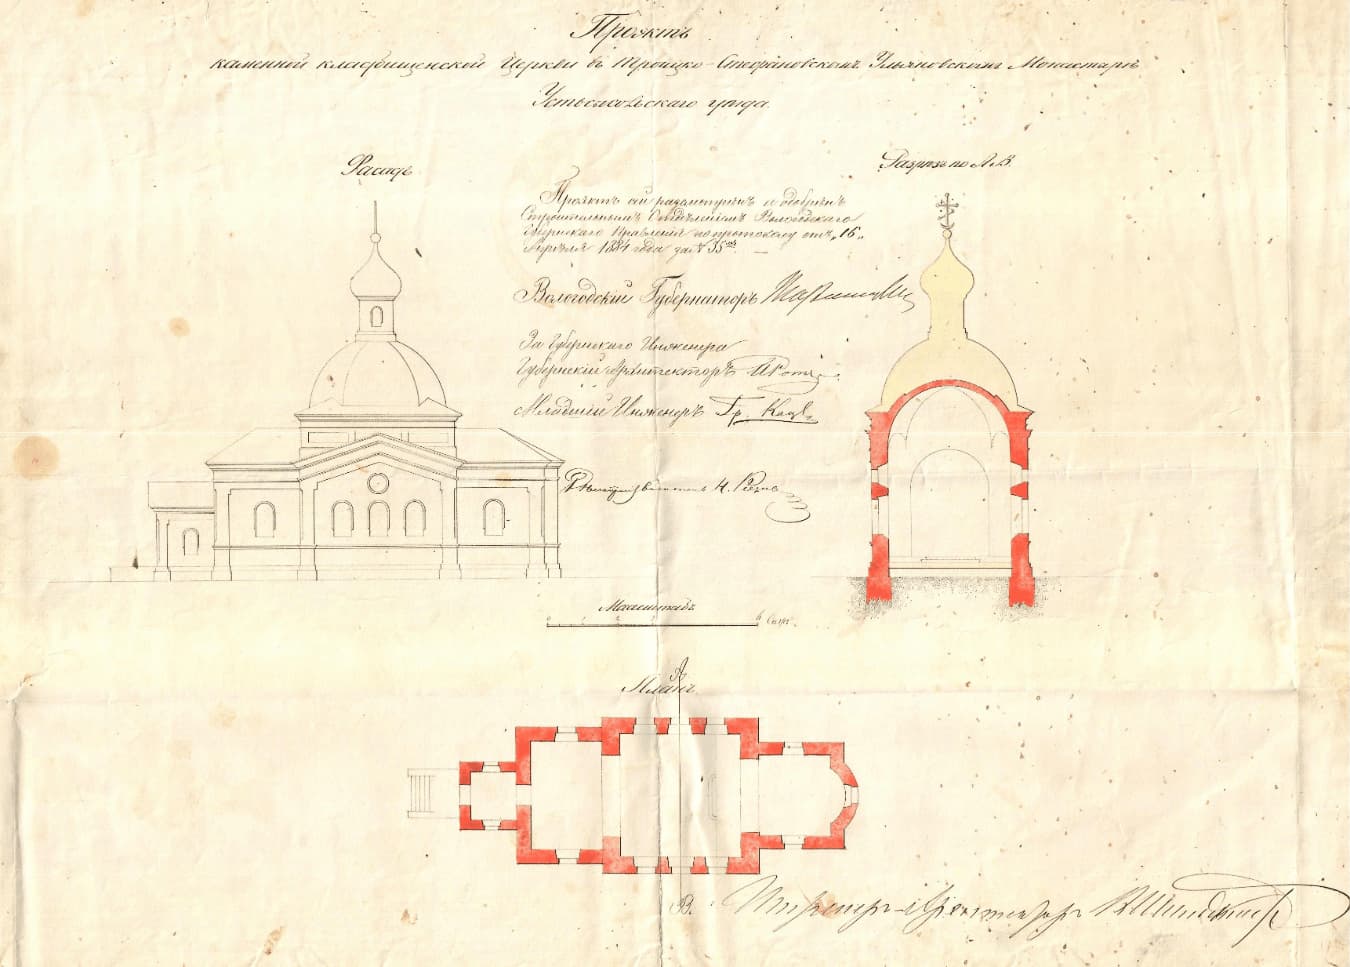 Проэктъ
каменной кладбищенской Церкви въ Троицко-Стефановскомъ Ульяновскомъ Монастырѣ
Устьсысольскаго уѣзда.
Фасадъ
Разрѣзъ по А.В.
Проэктъ сей разсмотрѣнъ и одобренъ
Строительнымъ Отдѣленіемъ Вологодскаго
Губернскаго Правленія по протоколу отъ „16„
Апрѣля 1884 года за №35
Вологодскій Губернаторъ
За Губернскаго Инженера
Губернскій Архитекторъ
Младшій Инженеръ Гр.
Дѣлопроизводитель Н.
Масштабъ
0 6 Саж.
А
Планъ
В.
Инженеръ-Архитекторъ